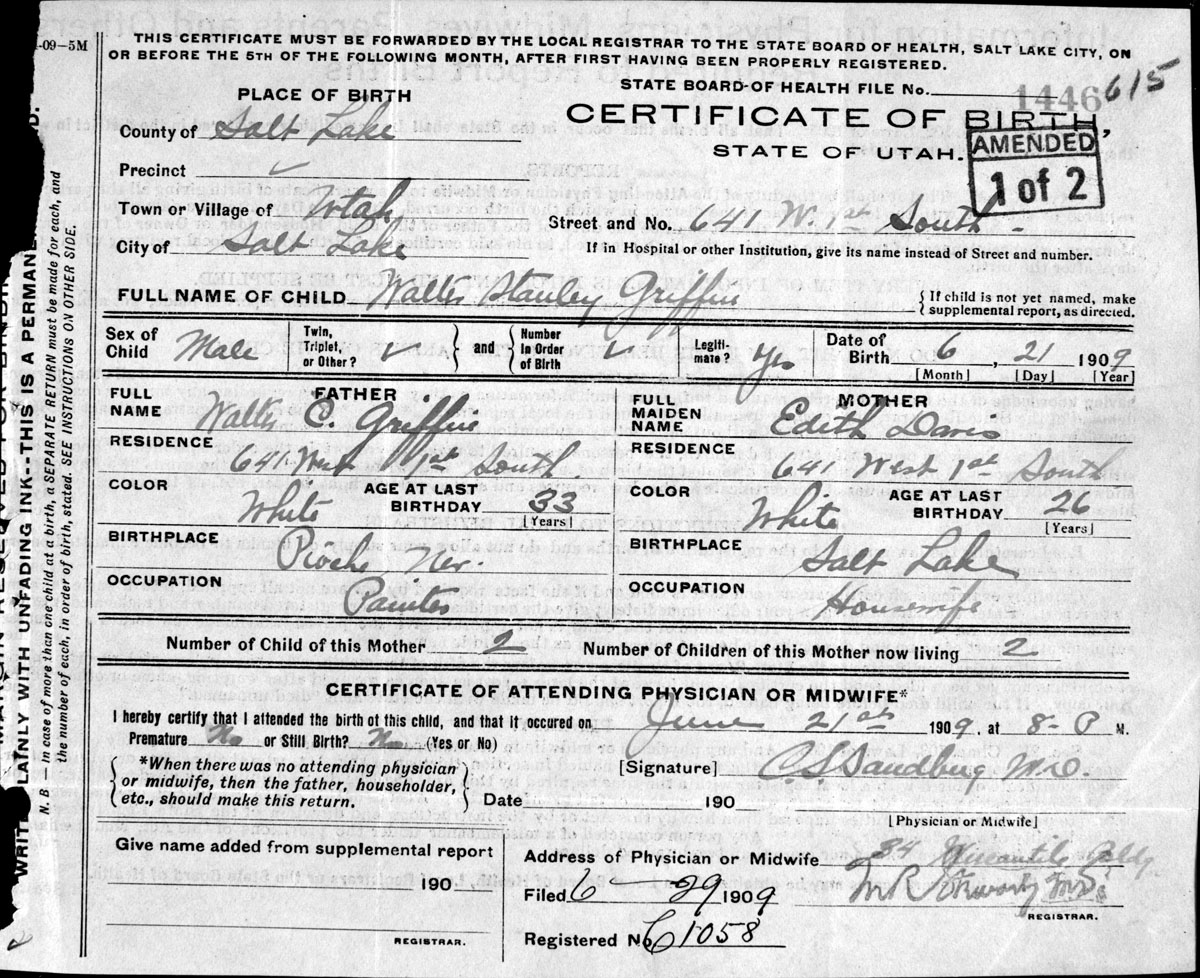 -09-5M
THIS CERTIFICATE MUST BE FORWARDED BY THE LOCAL REGISTRAR TO THE STATE BOARD OF HEALTH, SALT LAKE CITY, ON
OR BEFORE THE 5TH OF THE FOLLOWING MONTH, AFTER FIRST HAVING BEEN PROPERLY REGISTERED.
STATE BOARD OF HEALTH FILE No. 1446 615
PLACE OF BIRTH
CERTIFICATE OF BIRTH,
County of Salt Lake
STATE OF UTAH.
AMENDED
1 of 2
Precinct
Town or Village of Utah
Street and No. 641 W. 1st South.
City of Salt Lake
If in Hospital or other Institution, give its name instead of Street and number.
FULL NAME OF CHILD Walter Stanley Griffin
{ If child is not yet named, make supplemental report, as directed.
Sex of Child Male Twin, Triplet, or Other? } and { Number In Order of Birth Legiti-mate? Yes Date of Birth 6, 21 1909
[Month] [Day] [Year]
FATHER MOTHER
FULL NAME Walter C. Griffin FULL MAIDEN NAME Edith Davis
RESIDENCE 641 West 1st South RESIDENCE 641 West 1st South
COLOR White AGE AT LAST BIRTHDAY 33 [Years] COLOR White AGE AT LAST BIRTHDAY 26 [Years]
BIRTHPLACE Pioche Nev. BIRTHPLACE Salt Lake
OCCUPATION Painter OCCUPATION Housewife
Number of Child of this Mother 2 Number of Children of this Mother now living 2
CERTIFICATE OF ATTENDING PHYSICIAN OR MIDWIFE*
I hereby certify that I attended the birth of this child, and that it occured on June 21st 1909, at 8- P M.
Premature No or Still Birth? No (Yes or No)
{ *When there was no attending physician or midwife, then the father, householder, etc., should make this return. }
[Signature] C. L. Sandberg M.D.
Date 190
[Physician or Midwife]
Give name added from supplemental report
190
REGISTRAR.
Address of Physician or Midwife 34 Mercantile Bldg
Filed 6 29 1909
REGISTRAR.
Registered No. 61058
WRITE PLAINLY WITH UNFADING INK--THIS IS A PERMANE
N. B.—In case of more than one child at a birth, a SEPARATE RETURN must be made for each, and
the number of each, in order of birth, stated. SEE INSTRUCTIONS ON OTHER SIDE.